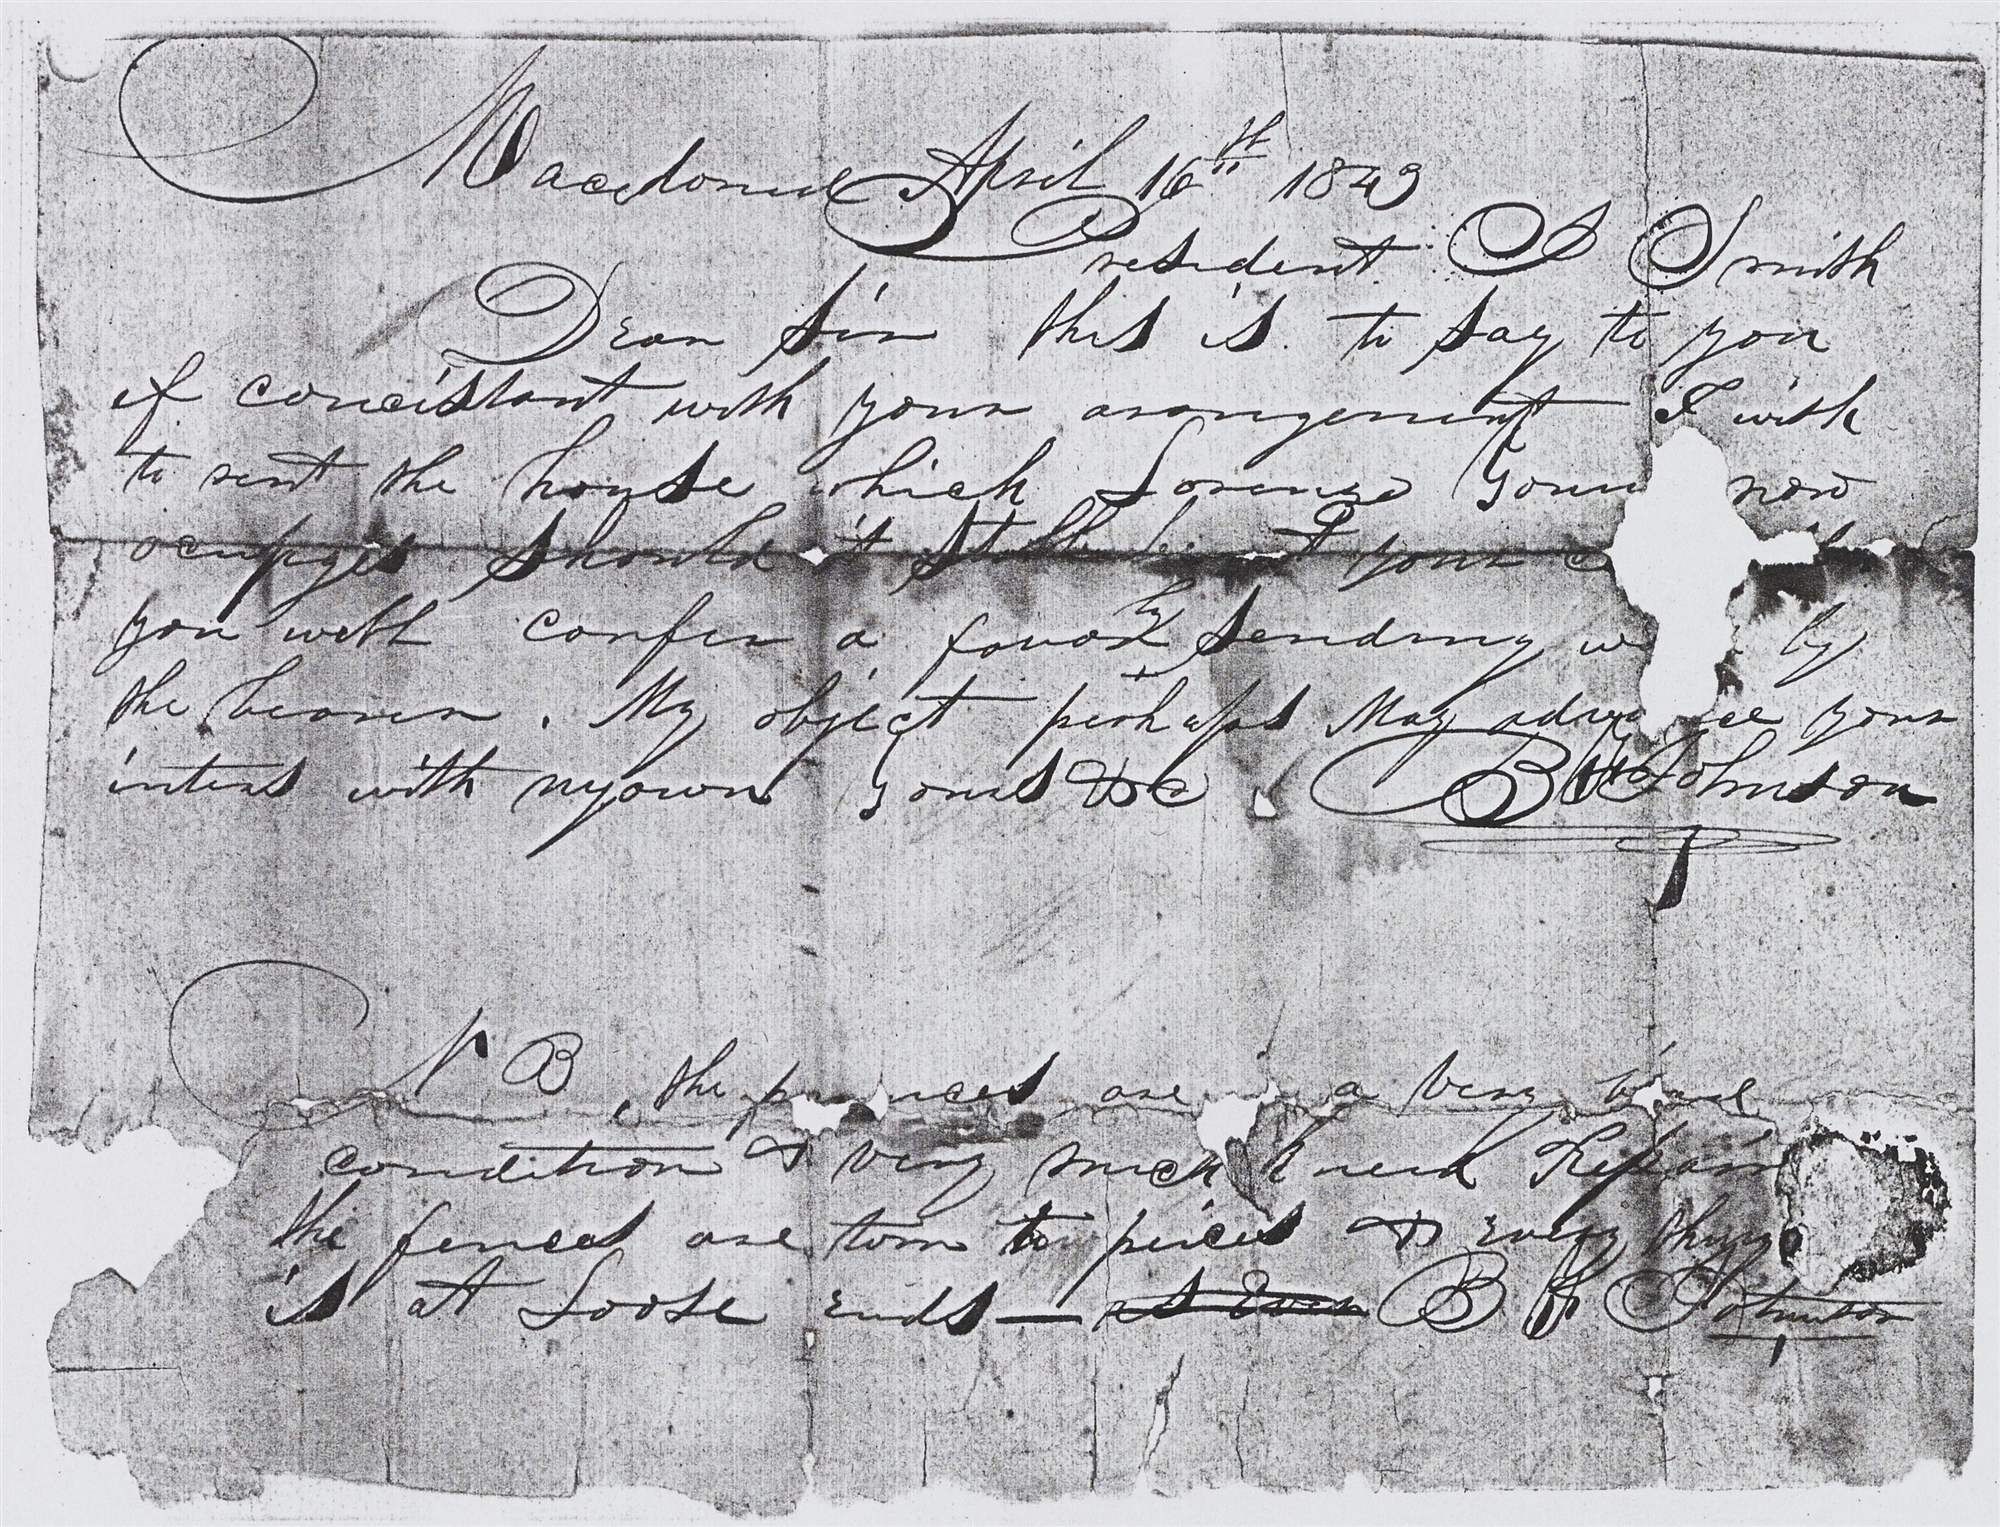 Macedonia April 16th 1843
President J Smith
Dear Sir this is to say to you
if concistant with your arangement I wish
to rent the house which Lorenzo Youn now
ocupyes should it still be at your
you will confer a favor by sending by
the bearer. My object perhaps May your
inters with my own Yours &c B F Johnson
N B, the are in a very
condition & very much kneed Repair
the fences are torn to peices & Every thing
is at Loose Ends — B F Johnson